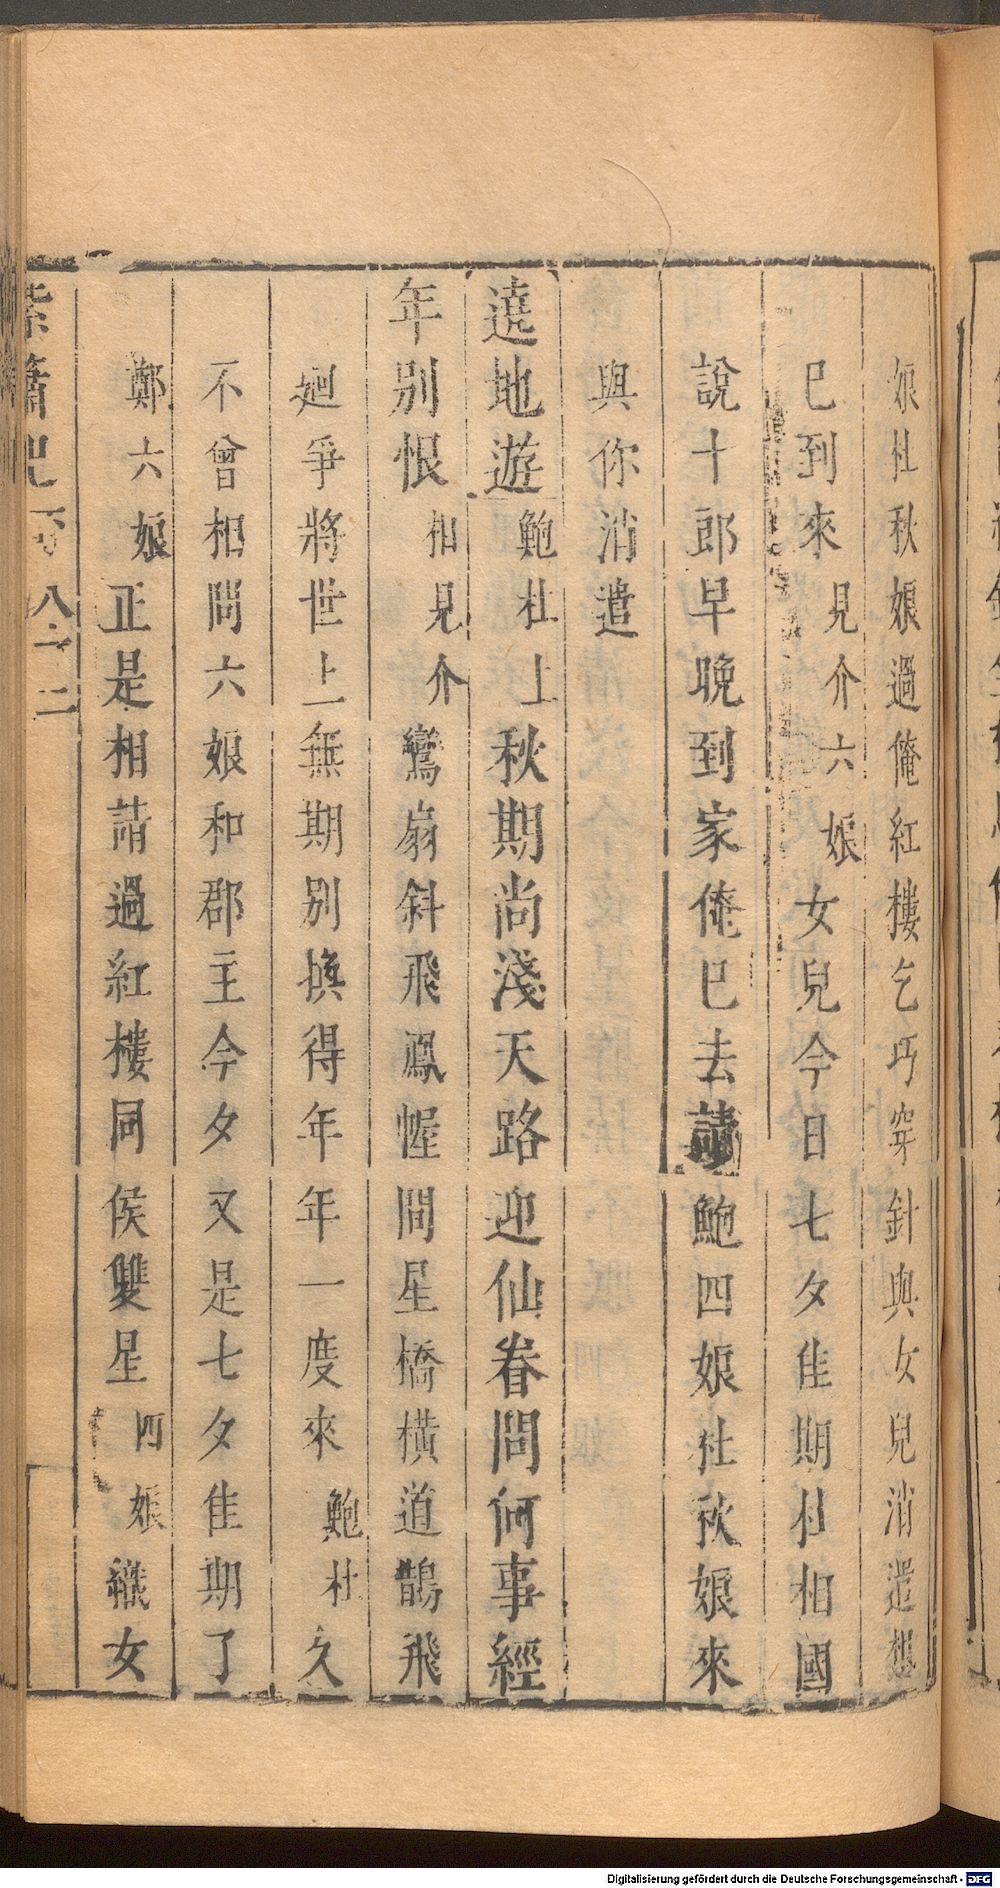 娘杜秋娘過俺紅樓乞巧穿針與女兒消遣想
巳到來見介六娘女兒今日七夕佳期杜相國
說十郎早晚到家俺巳去請鮑四娘杜秋娘來
與你消遣
遶地遊鮑杜上秋期尚淺天路迎仙眷問何事經
年別恨相見介鸞扇斜飛鳳幄間星橋橫道鵲飛
廻爭將世上無期別換得年年一度來鮑杜久
不曾相問六娘和郡主今夕又是七夕佳期了
鄭六娘正是相請過紅樓同侯雙星四娘織女
紫簫記 八十二
Digitalisierung gefördert durch die Deutsche Forschungsgemeinschaft - DFG